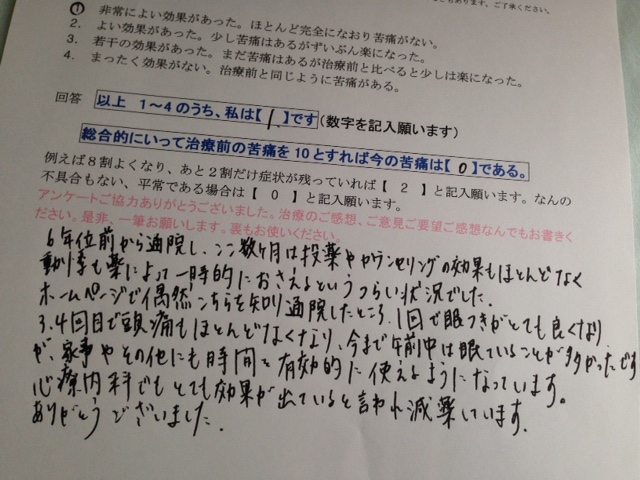 ① 非常によい効果があった。ほとんど完全になおり苦痛がない。
2. よい効果があった。少し苦痛はあるがずいぶん楽になった。
3. 若干の効果があった。まだ苦痛はあるが治療前と比べると少しは楽になった。
4. まったく効果がない。治療前と同じように苦痛がある。
回答 以上 1～4のうち、私は【 1 】です(数字を記入願います)
総合的にいって治療前の苦痛を10とすれば今の苦痛は【 0 】である。
例えば8割よくなり、あと2割だけ症状が残っていれば【 2 】と記入願います。なんの
不具合もない、平常である場合は【 0 】と記入願います。
アンケートご協力ありがとうございました。治療のご感想、ご意見ご要望ご感想なんでもお書きく
ださい。是非、一筆お願いします。裏もお使いください。
6年位前から通院し、ここ数ヶ月は投薬やカウンセリングの効果もほとんどなく
動悸も薬によって一時的におさえるというつらい状況でした。
ホームページで偶然こちらを知り通院したところ、1回で眠つきがとても良くなり
3.4回目で頭痛もほとんどなくなり、今まで午前中は眠っていることが多かったです
が、家事やその他にも時間を有効的に使えるようになっています。
心療内科でもとても効果が出ていると言われ減薬しています。
ありがとうございました.